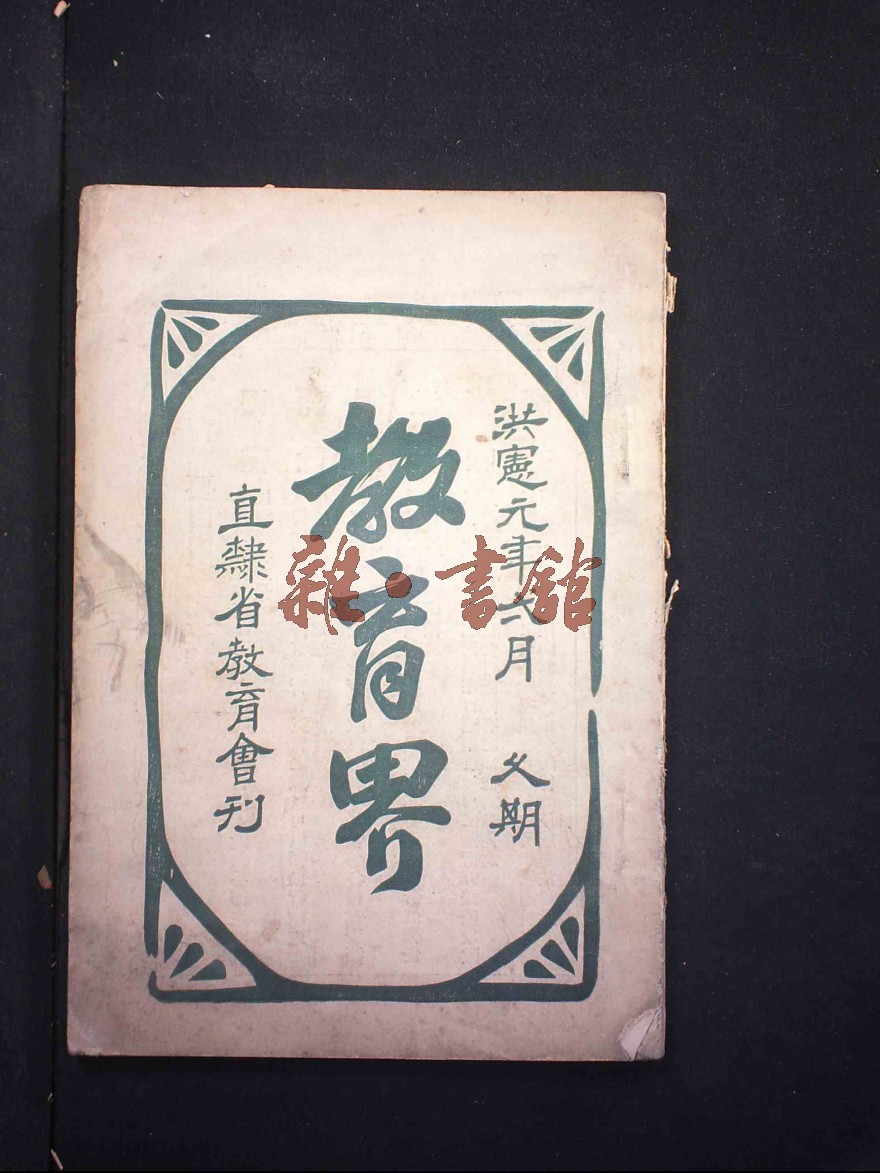 洪憲元年弍月 期
教育界
直隸省教育會刊
雜·書館